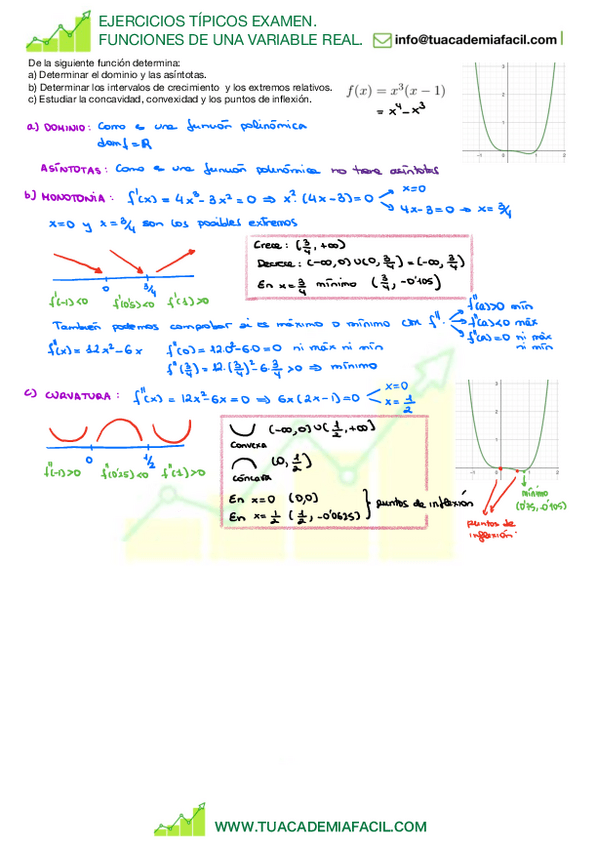 EJERCICIOS TÍPICOS EXAMEN.
FUNCIONES DE UNA VARIABLE REAL.
info@tuacademiafacil.com
De la siguiente función determina:
a) Determinar el dominio y las asíntotas.
b) Determinar los intervalos de crecimiento y los extremos relativos.
c) Estudiar la concavidad, convexidad y los puntos de inflexión.
f(x) = x³(x − 1)
= x⁴ − x³
a) DOMINIO: Como es una función polinómica
dom f = ℝ
ASÍNTOTAS: Como es una función polinómica no tiene asíntotas
b) MONOTONIA: f'(x) = 4x³ − 3x² = 0 ⇒ x² (4x − 3) = 0
x=0
4x−3=0 → x = 3/4
x=0 y x = 3/4 son los posibles extremos
0 3/4
f'(-1)<0 f'(0'5)<0 f'(1)>0
Crece: (3/4, +∞)
Decrece: (-∞,0) ∪ (0, 3/4) = (-∞, 3/4)
En x = 3/4 mínimo (3/4, -0'105)
También podemos comprobar si es máximo o mínimo con f''.
f''(a)>0 mín
f''(a)<0 máx
f''(a)=0 ni máx ni mín
f''(x) = 12x² − 6x f''(0) = 12·0² − 6·0 = 0 ni máx ni mín
f''(3/4) = 12·(3/4)² − 6·3/4 > 0 ⇒ mínimo
c) CURVATURA: f''(x) = 12x² − 6x = 0 ⇒ 6x(2x − 1) = 0
x=0
x = 1/2
0 1/2
f''(-1)>0 f''(0'25)<0 f''(1)>0
(-∞,0) ∪ (1/2, +∞)
convexa
(0, 1/2)
cóncava
En x=0 (0,0)
En x = 1/2 (1/2, -0'0625)
puntos de inflexión
puntos de inflexión.
mínimo
(0'75, -0'105)
WWW.TUACADEMIAFACIL.COM